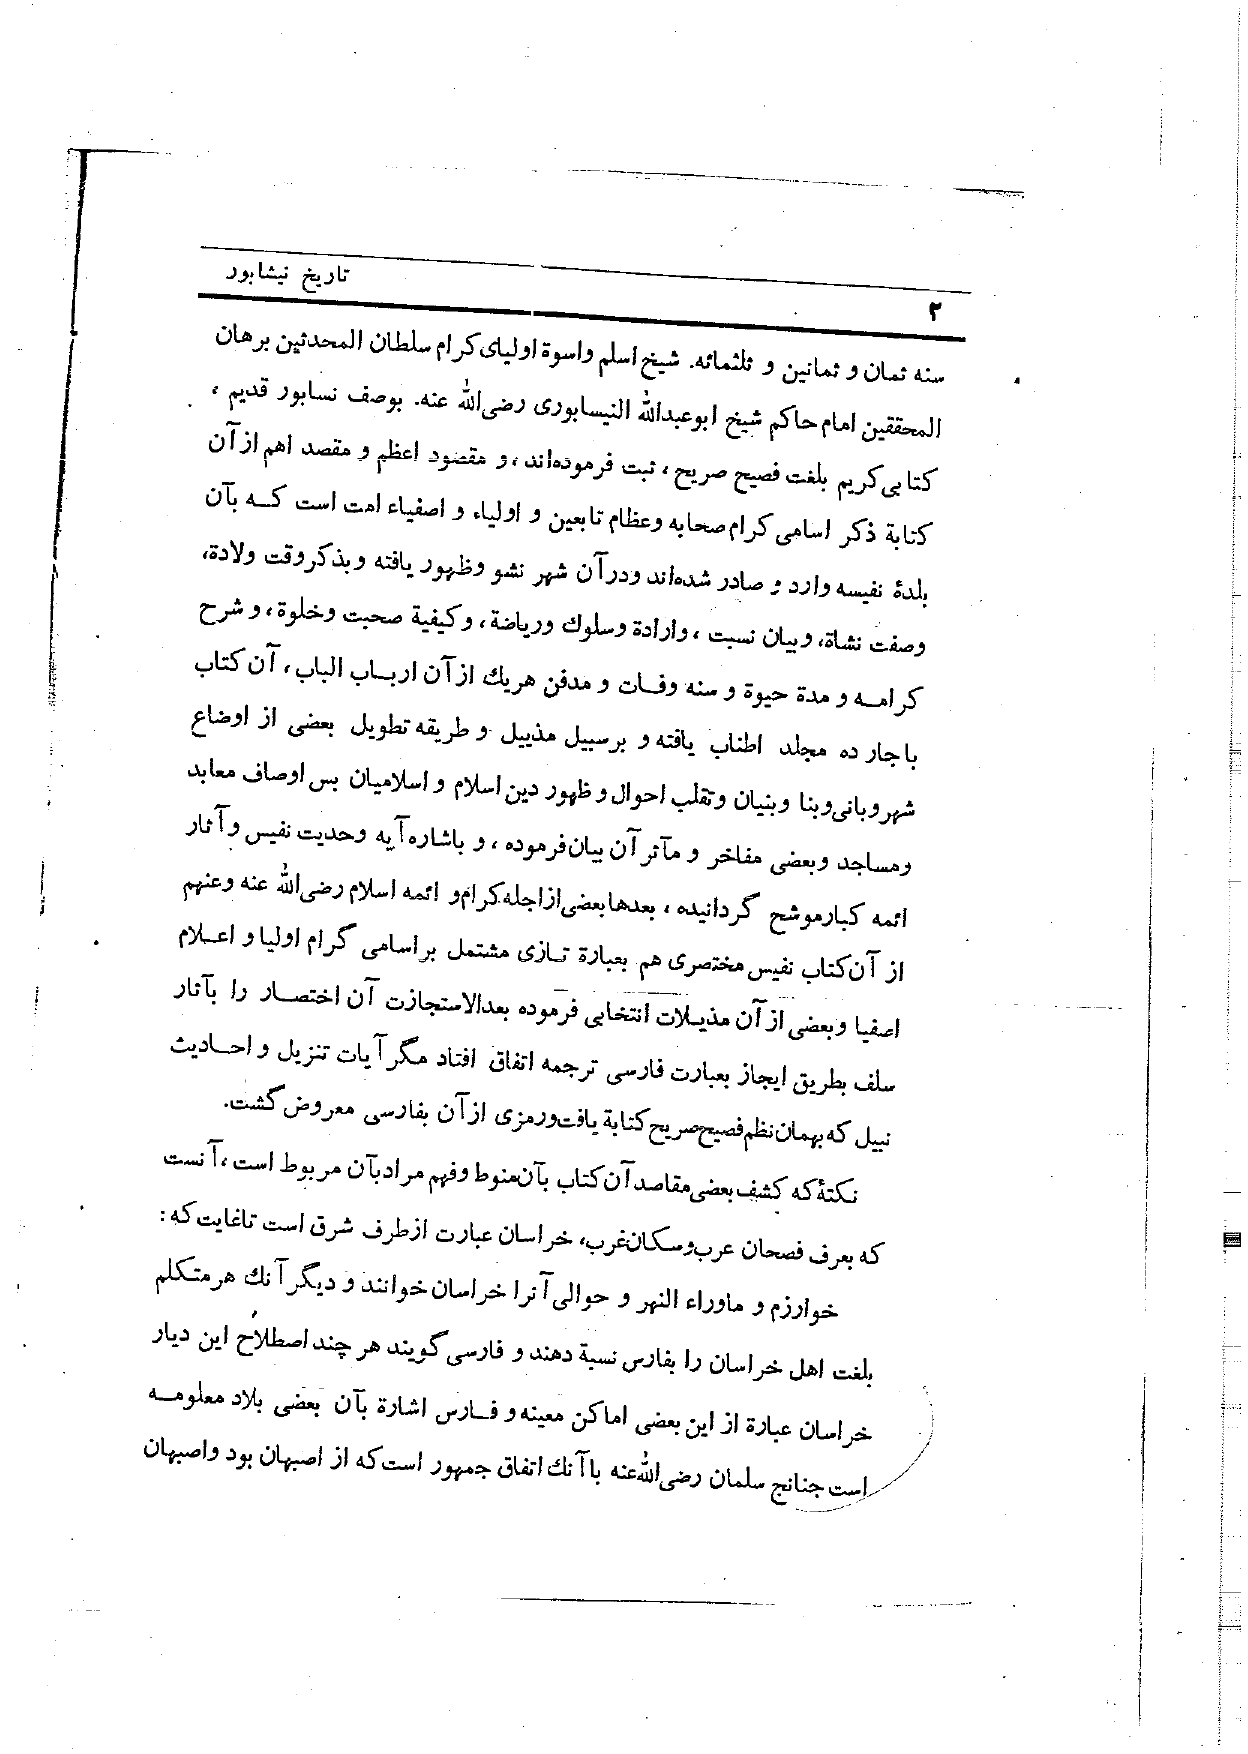 تاریخ نیشابور
۲
سنه ثمان و ثمانین و ثلثمائه. شیخ اسلم واسوة اولیای کرام سلطان المحدثین برهان
المحققین امام حاکم شیخ ابوعبدالله النیسابوری رضی‌الله عنه. بوصف نسابور قدیم ،
کتابی کریم بلغت فصیح صریح ، ثبت فرموده‌اند ، و مقصود اعظم و مقصد اهم از آن
کتابة ذکر اسامی کرام صحابه وعظام تابعین و اولیاء و اصفیاء امت است که بآن
بلدهٔ نفیسه وارد و صادر شده‌اند ودرآن شهر نشو وظهور یافته وبذکر وقت ولادة،
وصفت نشاة، وبیان نسبت ، وارادة وسلوك وریاضة، وکیفیة صحبت وخلوة، و شرح
کرامه و مدة حیوة و سنه وفات و مدفن هریك از آن ارباب الباب ، آن کتاب
باجار ده مجلد اطناب یافته و برسبیل مذییل و طریقه تطویل بعضی از اوضاع
شهر وبانی وبنا وبنیان وتقلب احوال و ظهور دین اسلام و اسلامیان بس اوصاف معابد
ومساجد وبعضی مفاخر و مآثر آن بیان فرموده ، و باشاره آیه وحدیت نفیس و آثار
ائمه کبار موشح گردانیده ، بعدها بعضی از اجله کرام و ائمه اسلام رضی‌الله عنه وعنهم
از آن کتاب نفیس مختصری هم بعبارة تازی مشتمل بر اسامی گرام اولیا و اعلام
اصفیا وبعضی از آن مذیلات انتخابی فرموده بعدالاستجازت آن اختصار را بآثار
سلف بطریق ایجاز بعبارت فارسی ترجمه اتفاق افتاد مگر آیات تنزیل و احادیث
نبیل که بهمان نظم فصیح صریح کتابة یافت ورمزی از آن بفارسی معروض گشت.
نکتهٔ که کشف بعضی مقاصد آن کتاب بآن منوط وفهم مراد بآن مربوط است ، آنست
که بعرف فصحان عرب و سکان غرب، خراسان عبارت از طرف شرق است تاغایت که :
خوارزم و ماوراء النهر و حوالی آنرا خراسان خوانند و دیگر آنك هر متکلم
بلغت اهل خراسان را بفارس نسبة دهند و فارسی گویند هر چند اصطلاح این دیار
خراسان عبارة از این بعضی اماکن معینه و فارس اشارة بآن بعضی بلاد معلومه
است جنانج سلمان رضی‌الله‌عنه باآنك اتفاق جمهور است که از اصبهان بود واصبهان